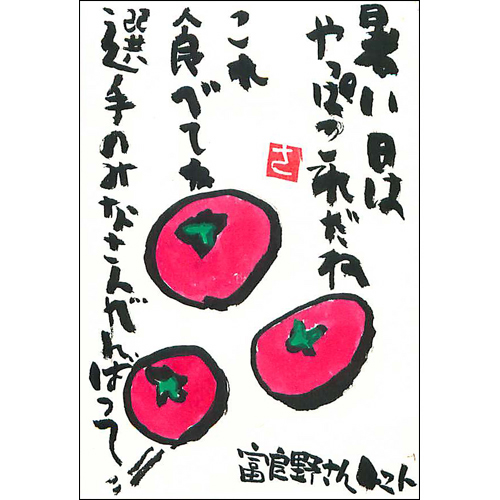 暑い日は
やっぱりこれだね
これ
食べてね
選手のみなさんがんばって!!
さ
富良野さん